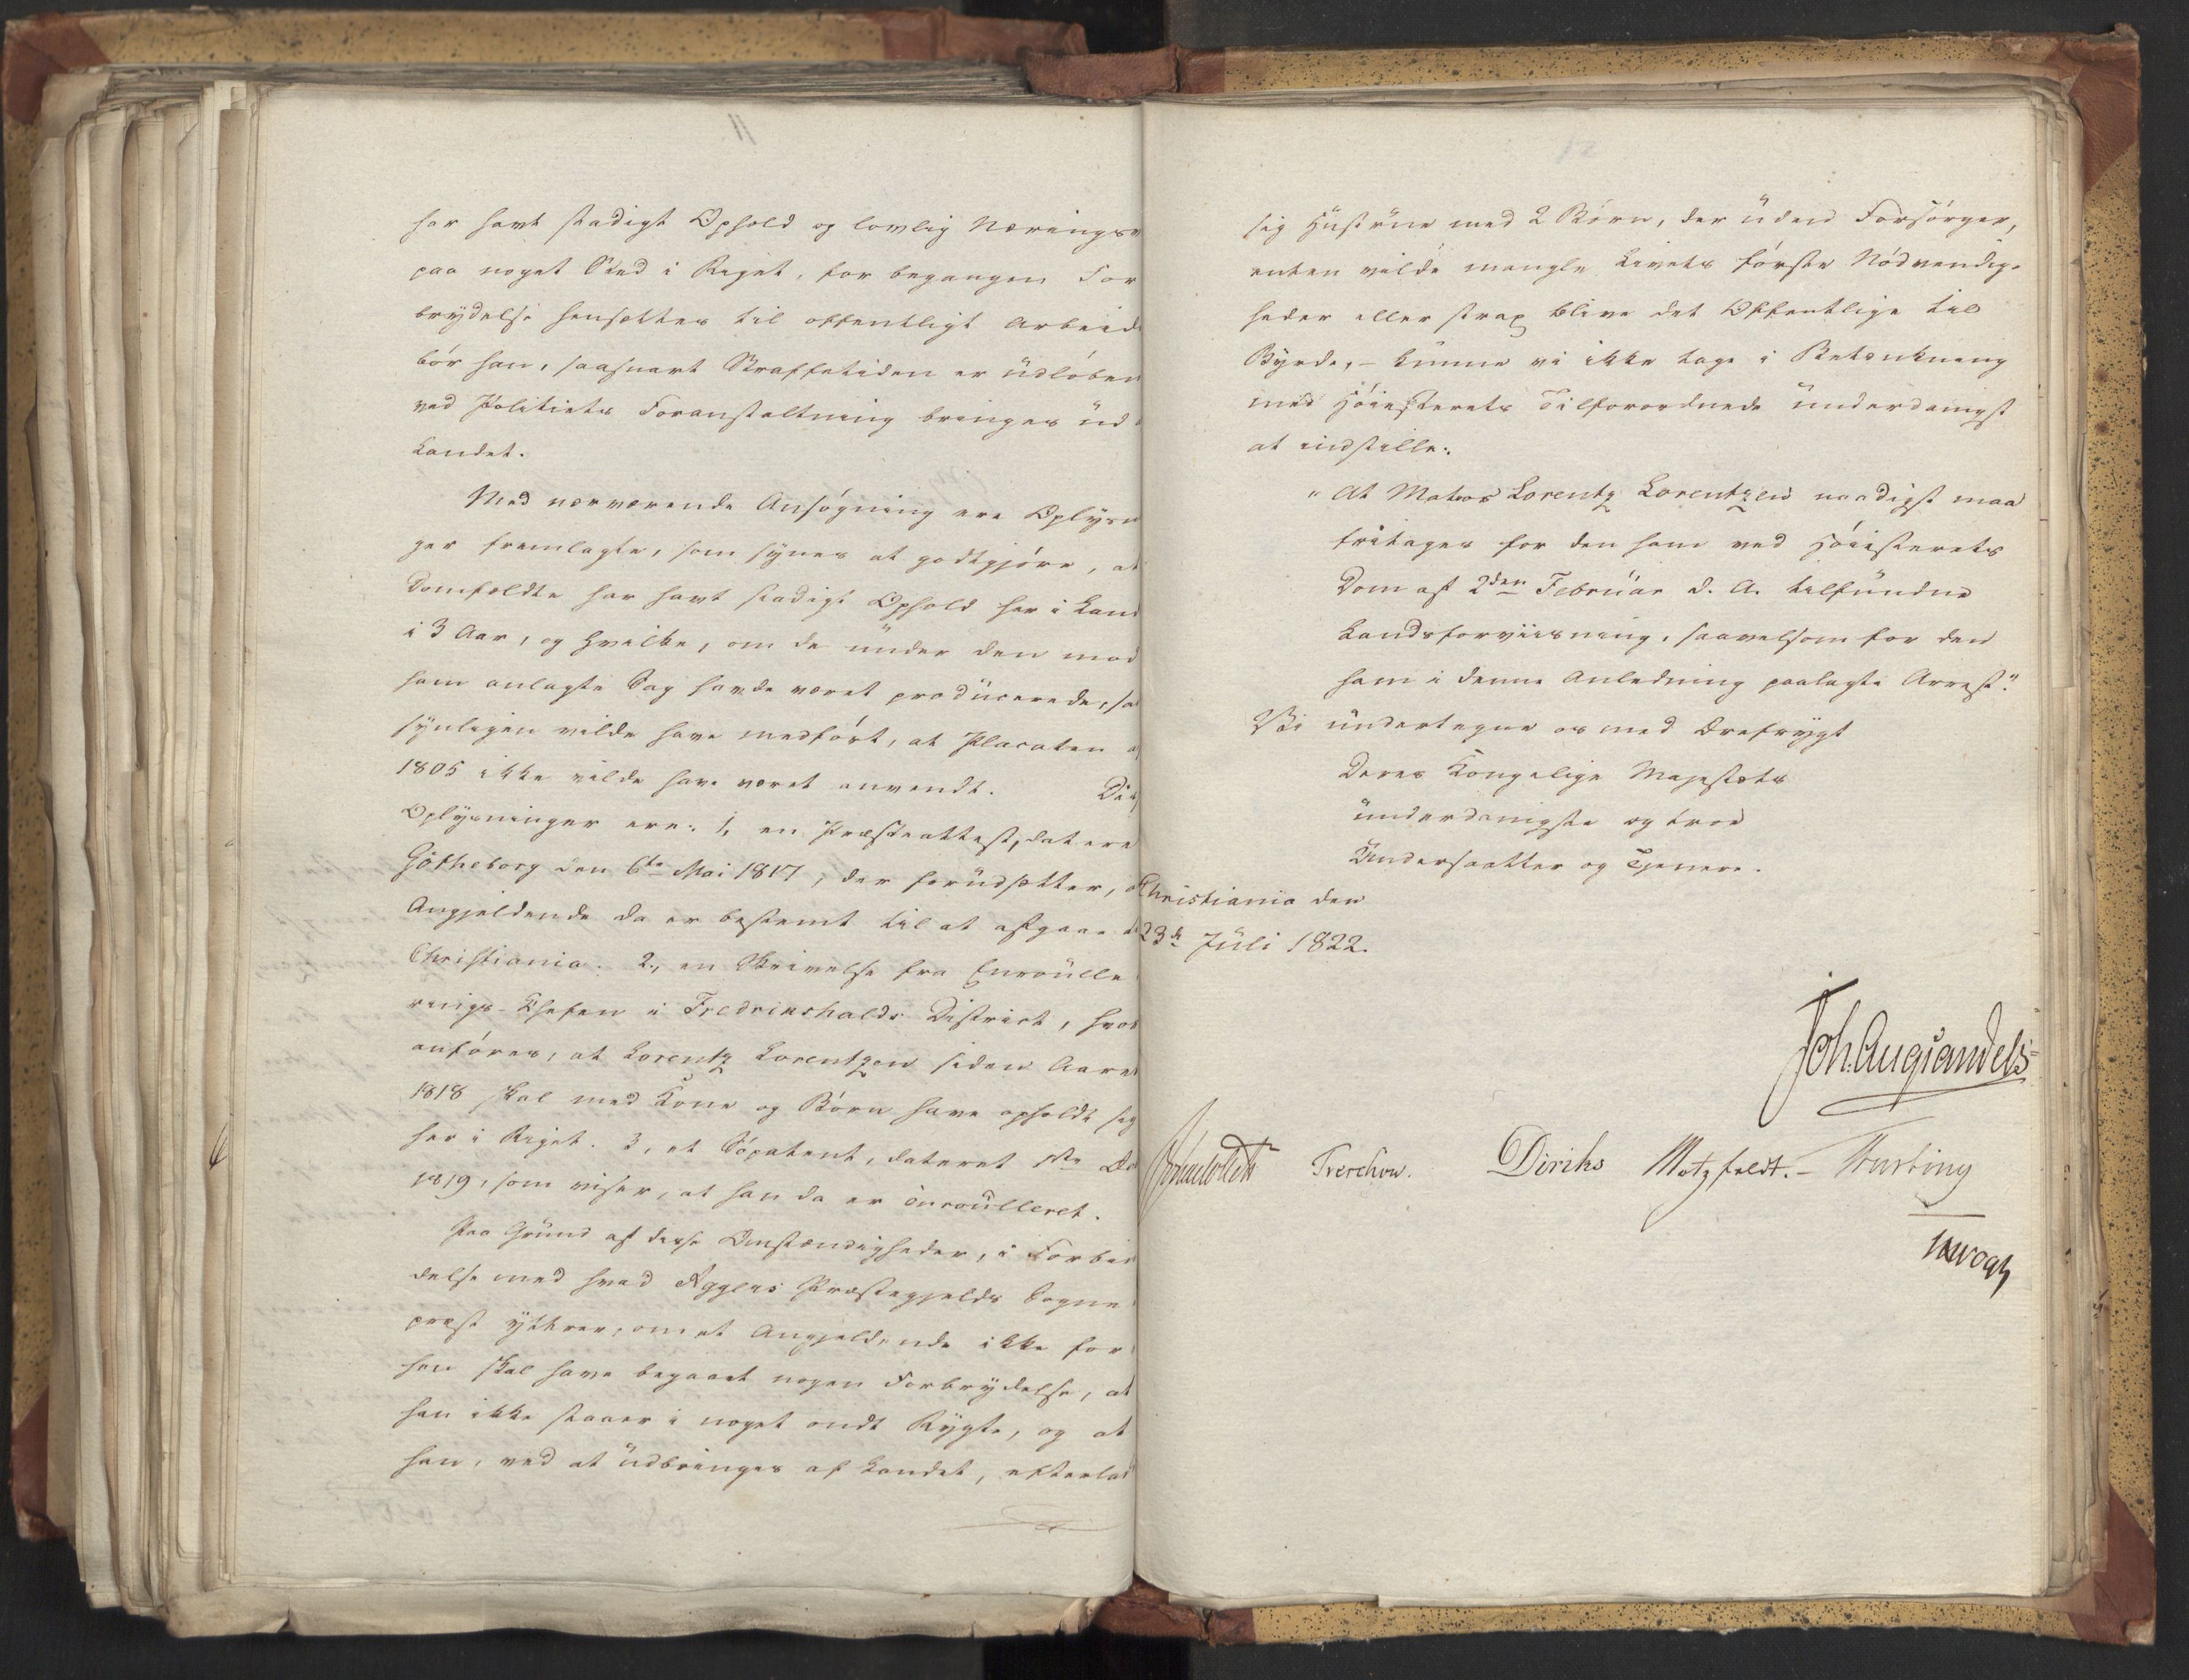 har havt stadigt Ophold og lovlig Nærings
paa noget Sted i Riget, for begangen For
brydelse hensættes til offentligt Arbeid
bör han, saasnart Straffetiden er udlöben
ved Politiets Foranstaltning bringes ud
Landet.
Med nærværende Ansögning ere Oplysn
ger fremlagte, som synes at godtgjöre, at
Domfældte har havt stadigt Ophold her i Land
i 3 Aar, og hvilke, om de under den mod
ham anlagte Sag havde været producerede, sa
synligen vilde have medfört, at Placaten a
1805 ikke vilde have været anvendt. Di
Oplysninger ere: 1, en Præsteattest, datere
Götheborg den 6te Mai 1817, der forudsætter, a
Angjeldende da er bestemt til at afgaae
Christiania. 2, en Skrivelse fra Enroulle
rings-Chefen i Fredrikshalds District, hvor
anföres, at Lorentz Lorentzen siden Aaret
1818 skal med Kone og Börn have opholdt sig
her i Riget. 3, et Söpatent, dateret 1ste
1819, som viser, at han da er enroulleret.
Paa Grund af disse Omstændigheder, i Forbin
delse med hvad Aggers Præstegjelds Sogne
præst yttrer, om at Angjeldende ikke for
hen skal have begaaet nogen Forbrydelse, at
han ikke staaer i noget ondt Rygte, og at
han, ved at udbringes af Landet, efterlad
sig Hustrue med 2 Börn, der uden Forsörger,
enten vilde mangle Livets förste Nödvendig-
heder eller strax blive det Offentlige til
Byrde, - kunne vi ikke tage i Betænkning
med Höiesterets Tilforordnede underdanigst
at indstille:
"At Matros Lorentz Lorentzen naadigst maa
fritages for den ham ved Höiesterets
Dom af 2den Februar d. A. tilfundne
Landsforviisning, saavelsom for den
ham i denne Anledning paalagte Arrest."
Vi undertegne os med Ærefrygt
Deres Kongelige Majestæts
underdanigste og troe
Undersaatter og Tjenere.
Christiania den
23de Juli 1822.
Joh. Aug Sandels
Sommerhielm Treschow. Diriks Motzfeldt. - Fasting